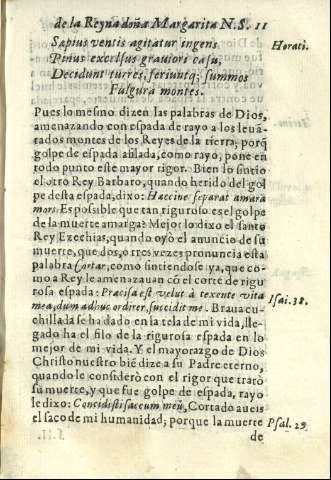 de la Reyna doña Margarita N.S. 11
Sæpius ventis agitatur ingens
Horati.
Pinus excelsus graviori casu,
Decidunt turres, feriuntq; summos
Fulgura montes.
Pues lo mesmo dizen las palabras de Dios,
amenazando con espada de rayo a los leuã
tados montes de los Reyes de la tierra; porq̃
golpe de espada afilada, como rayo, pone en
todo punto este mayor rigor. Bien lo sintio
el otro Rey Barbaro, quando herido del gol
pe desta espada, dixo: Haccine separat amara
mors. Es possible que tan riguroso es el golpe
de la muerte amarga? Mejor lo dixo el santo
Rey Ezechias, quando oyò el anuncio de su
muerte, que dos, o tres vezes pronuncia esta
palabra Cortar, como sintiendose ya, que co-
mo a Rey le amenazauan cõ el corte de rigu
rosa espada: Præcisa est velut à texente vita
mea, dum adhuc ordirer, succidit me. Braua cu-
Isai. 38.
chillada se ha dado en la tela de mi vida, lle-
gado ha el filo de la rigurosa espada en lo
mejor de mi vida. Y el mayorazgo de Dios
Christo nuestro biẽ dize a su Padre eterno,
quando le considerò con el rigor que tratò
su muerte, y que fue golpe de espada, rayo
le dixo: Concidisti saccum meũ, Cortado aueis
el saco de mi humanidad; porque la muerte
Psal. 29.
de